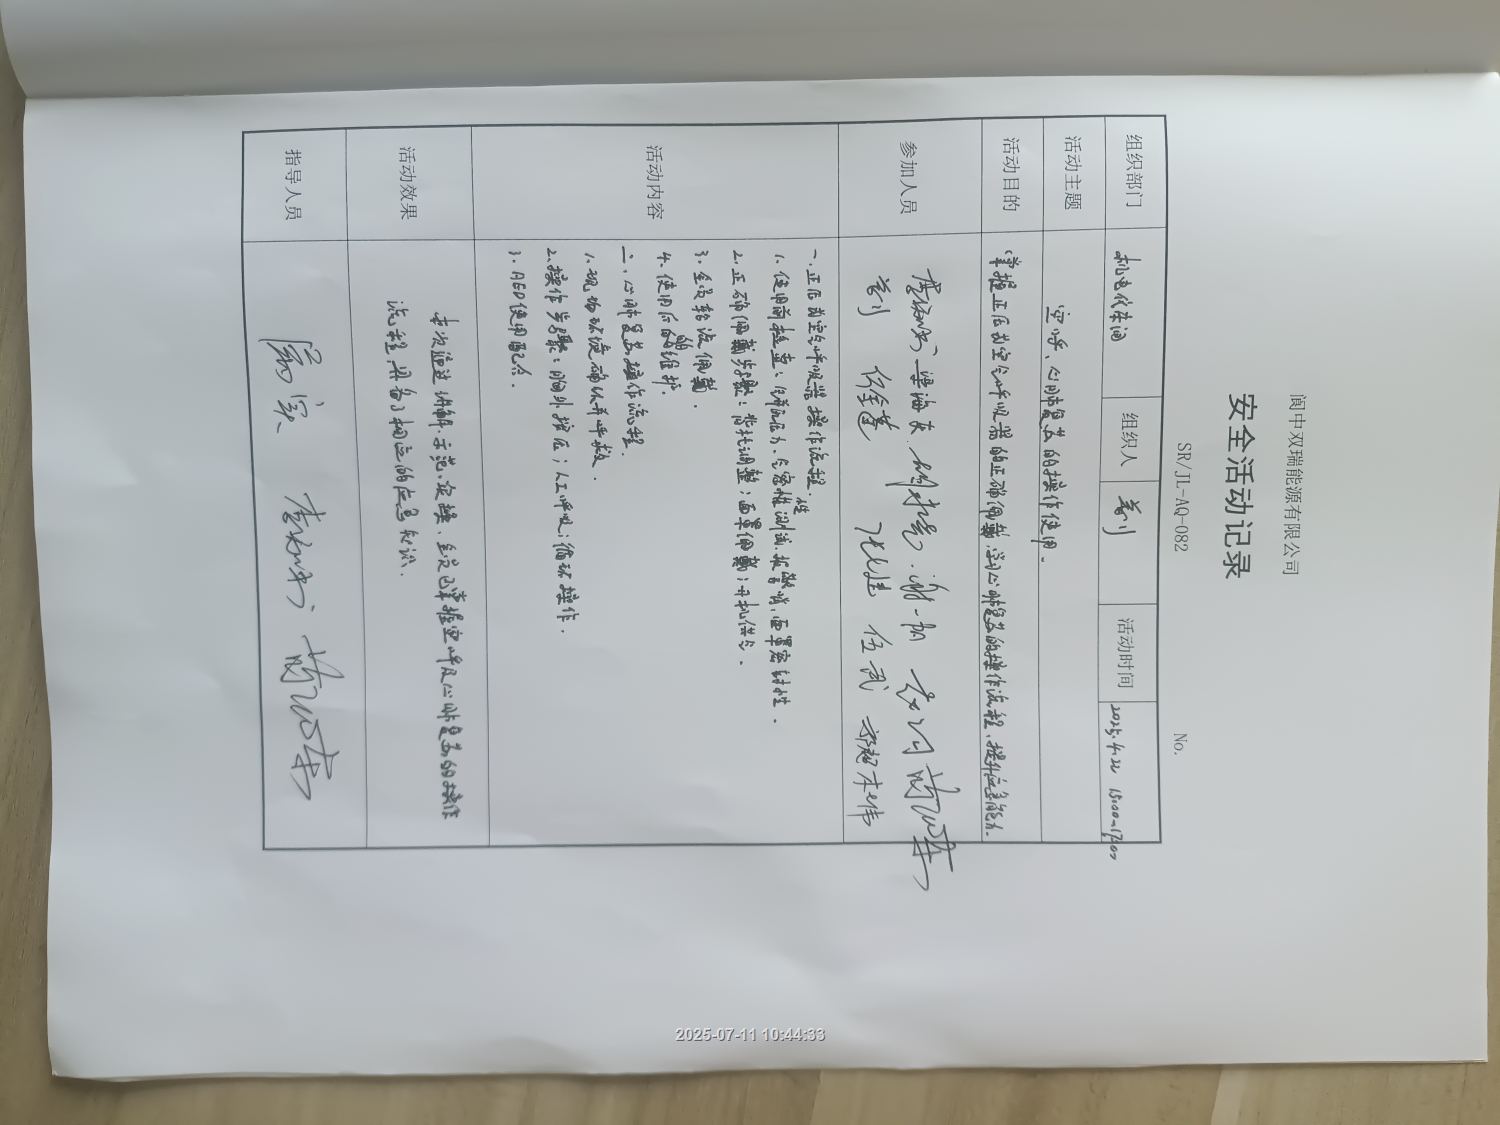 阆中双瑞能源有限公司
安全活动记录
SR/JL-AQ-082 No.
组织部门 机电仪车间 组织人 活动时间 2025.4.22 15:00-17:00
活动主题 空呼、心肺复苏的操作使用.
活动目的 掌握正压式空气呼吸器的正确佩戴,学习心肺复苏的操作流程,提升应急能力.
参加人员
伍武
活动内容
一、正压式空气呼吸器操作流程.
1. 使用前检查:气瓶压力、气密性测试、报警哨、面罩密封性.
2. 正确佩戴步骤:背托调整;面罩佩戴;开机供气.
3. 全员轮流佩戴.
4. 使用后的维护.
二、心肺复苏操作流程.
1. 现场环境确认并呼救.
2. 操作步骤:胸外按压;人工呼吸;循环操作.
3. AED使用配合.
活动效果 本次通过讲解、示范、实操,全员已掌握空呼及心肺复苏的操作
流程,具备了相应的应急知识.
指导人员
2025-07-11 10:44:33